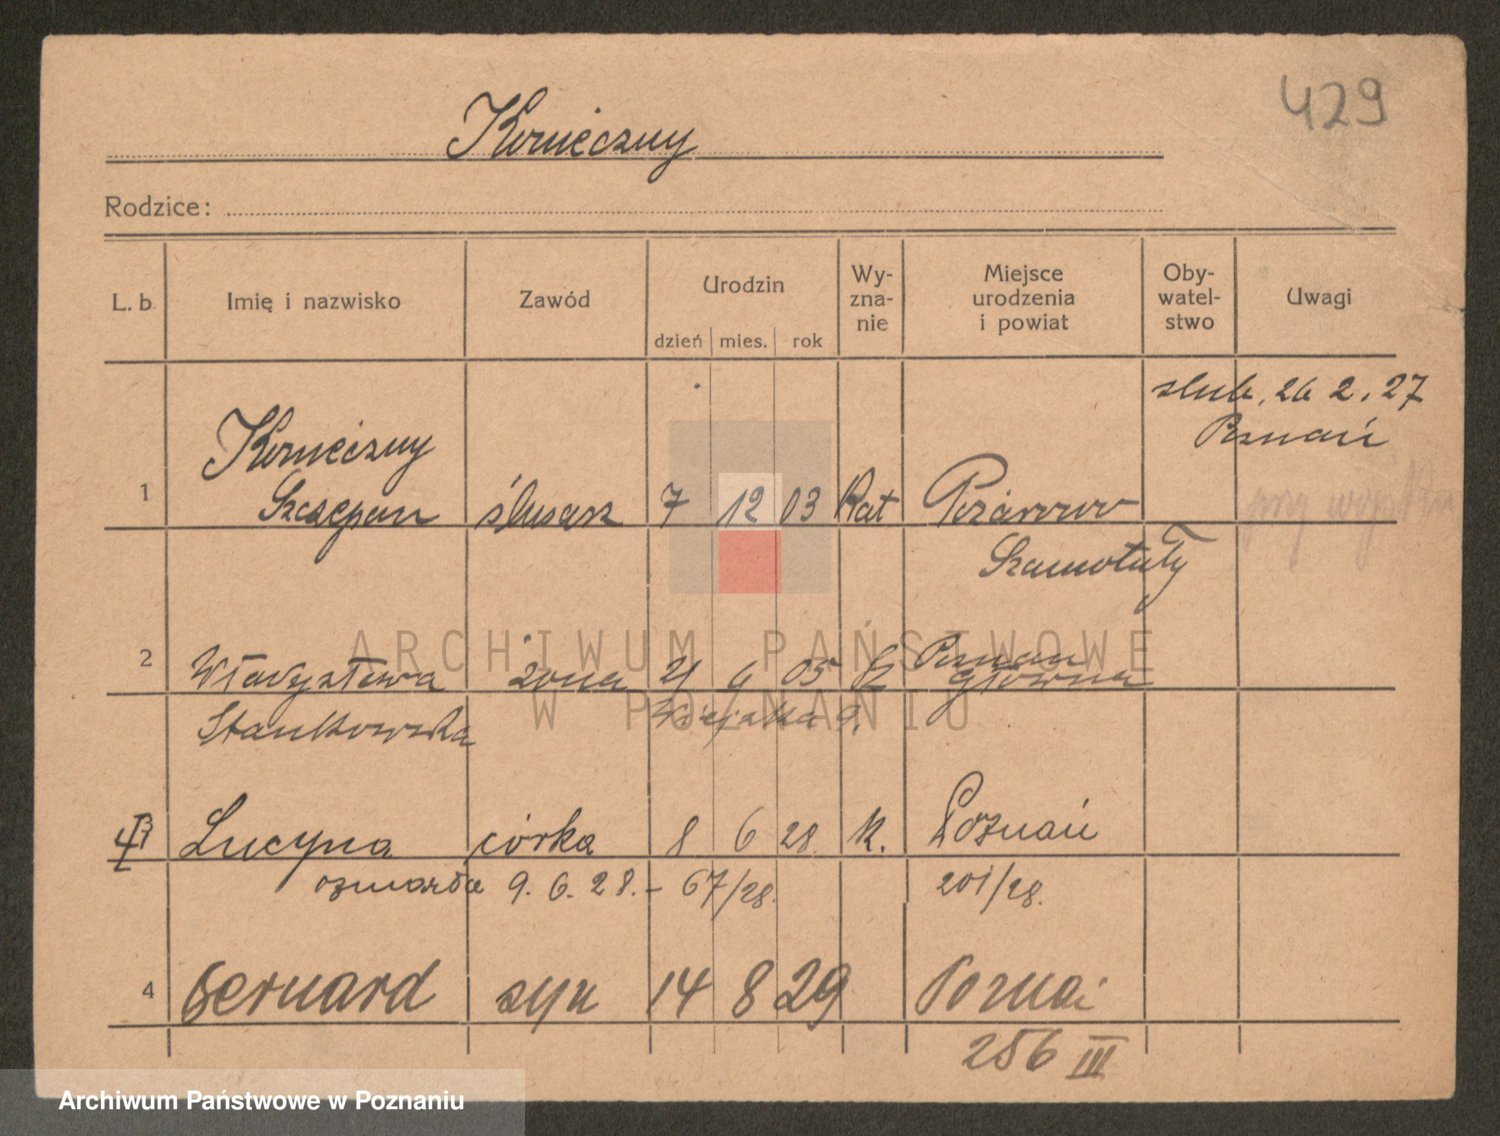 429
Konieczny
Rodzice:
L. b. Imię i nazwisko Zawód Urodzin dzień mies. rok Wy-zna-nie Miejsce urodzenia i powiat Oby-watel-stwo Uwagi
slub. 26 2. 27
Poznań
Konieczny
1 Szczepan ślusarz 7 12 03 Kat Pożarowo
Szamotuły
2 Władysława żona 21 6 05 Poznan
główna
Stankowska Wiejska 9.
Lucyna córka 8 6 28. k. Poznań
ozmarła 9. 6. 28. - 67/28. 201/28.
4 Bernard syn 14 8 29 Poznań
256 III
ARCHIWUM PAŃSTWOWE
W POZNANIU
Archiwum Państwowe w Poznaniu